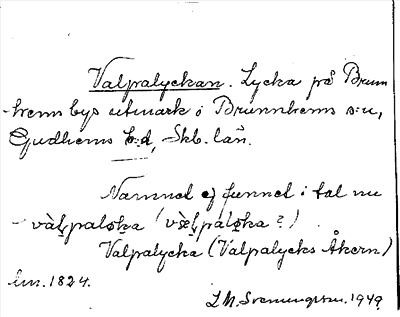 Valpalyckan. Lycka på Brunn-
hems bys utmark i Brunnhems s:n,
Gudhems h:d, Skb. län.
Namnet ej funnet i tal nu
Valpalycka (Valpalycks Åkern)
lm. 1824.
L.M. Svenungsson. 1949